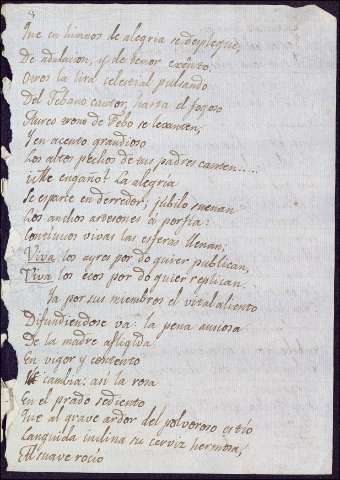 Que en himnos de alegria se despleguè,
De adulacion, y de temor exênto.
Otros la lira celestial pulsando
Del Tebano cantor, hasta el fogoso
Aureo trono de Febo se levanten,
Y en acento grandioso
Los altos pechos de tus padres canten.....
¿Me engaño? La alegria
Se esparce en derredor; jubilo suenan
Los anchos artesones á porfia:
Continuos vivas las esferas llenan;
Viva los ayres por do quier publican,
Viva los ecos por do quier replican.
Ya por sus miembros el vital aliento
Difundiendose va: la pena ansiosa
De la madre afligida
En vigor y contento
se cambia: asi la rosa
En el prado sediento
Que al grave ardor del polvoroso estio
Languida inclina su cerviz hermosa,
Al suave rocio